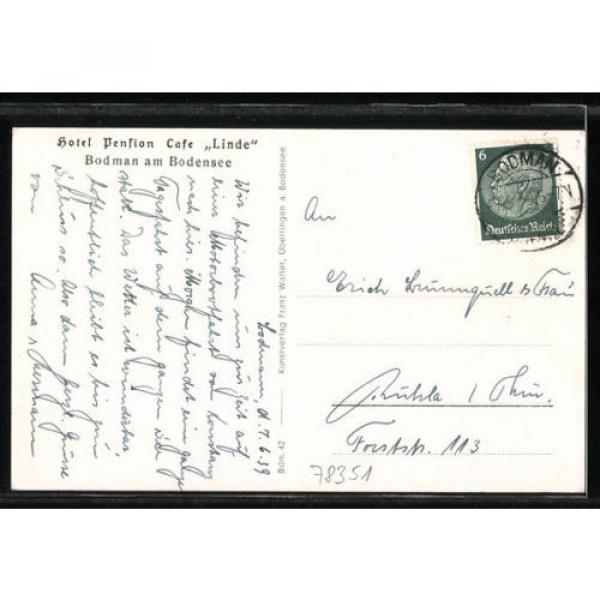 Hotel Pension Cafe „Linde“
Bodman am Bodensee
Bodman, d. 7.6.39
Wir befinden uns zur Zeit auf
eine Motorbootfahrt von Konstanz
nach hier. Morgen findet ein ganze
Tagesfahrt auf dem ganzen See
statt. Das Wetter ist wunderbar
hoffentlich bleibt es bis zum
Schluss so. Also dann herzl. Grüsse
von Anna & Hermann
Kunstverlag Franz Walter, Überlingen a. Bodensee
Bdn. 42
6
Deutsches Reich
BODMAN
An
Erich Brunnquell & Frau
Ruhla / Thür.
Forststr. 113
78351